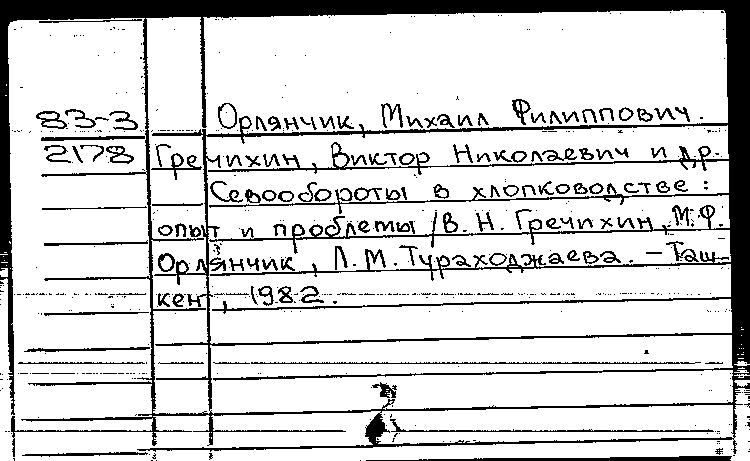 83-3 Орлянчик, Михаил Филиппович.
2178 Гречихин, Виктор Николаевич и др.
Севообороты в хлопководстве:
опыт и проблемы /В. Н. Гречихин, М.Ф.
Орлянчик, Л. М. Тураходжаева. – Таш-
кент, 1982.